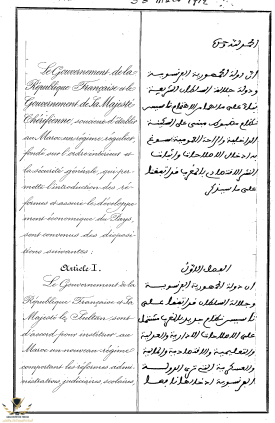 30 Mars 1912
Le Gouvernement de la
République Française et le
Gouvernement de Sa Majesté
Chérifienne, soucieux d'établir
au Maroc un régime régulier,
fondé sur l'ordre intérieur et
la sécurité générale, qui per-
mette l'introduction des ré-
formes et assure le développe-
ment économique du Pays,
sont convenus des disposi-
tions suivantes:
Article I.
Le Gouvernement de la
République Française et Sa
Majesté le Sultan sont
d'accord pour instituer au
Maroc un nouveau régime
comportant les réformes admi-
nistratives, judiciaires, scolaires,
الحمد لله وحده
ان دولة الجمهورية الفرنسوية
ودولة جلالة السلطان الشريفة
الفصل الاول
ان دولة الجمهورية الفرنسوية
وجلالة السلطان قد اتفقا على
تاسيس نظام جديد بالمغرب مشتمل
على الاصلاحات الادارية والعدلية
والتعليمية والاقتصادية والمالية
والعسكرية التي ترى الدولة
الفرنسوية ادخالها نافعا